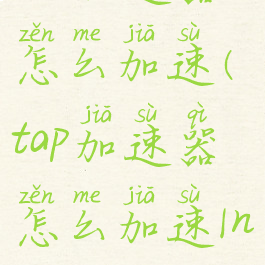 zěn me jiā sù
怎么加速(
jiā sù qì
tap加速器
zěn me jiā sù
怎么加速|n